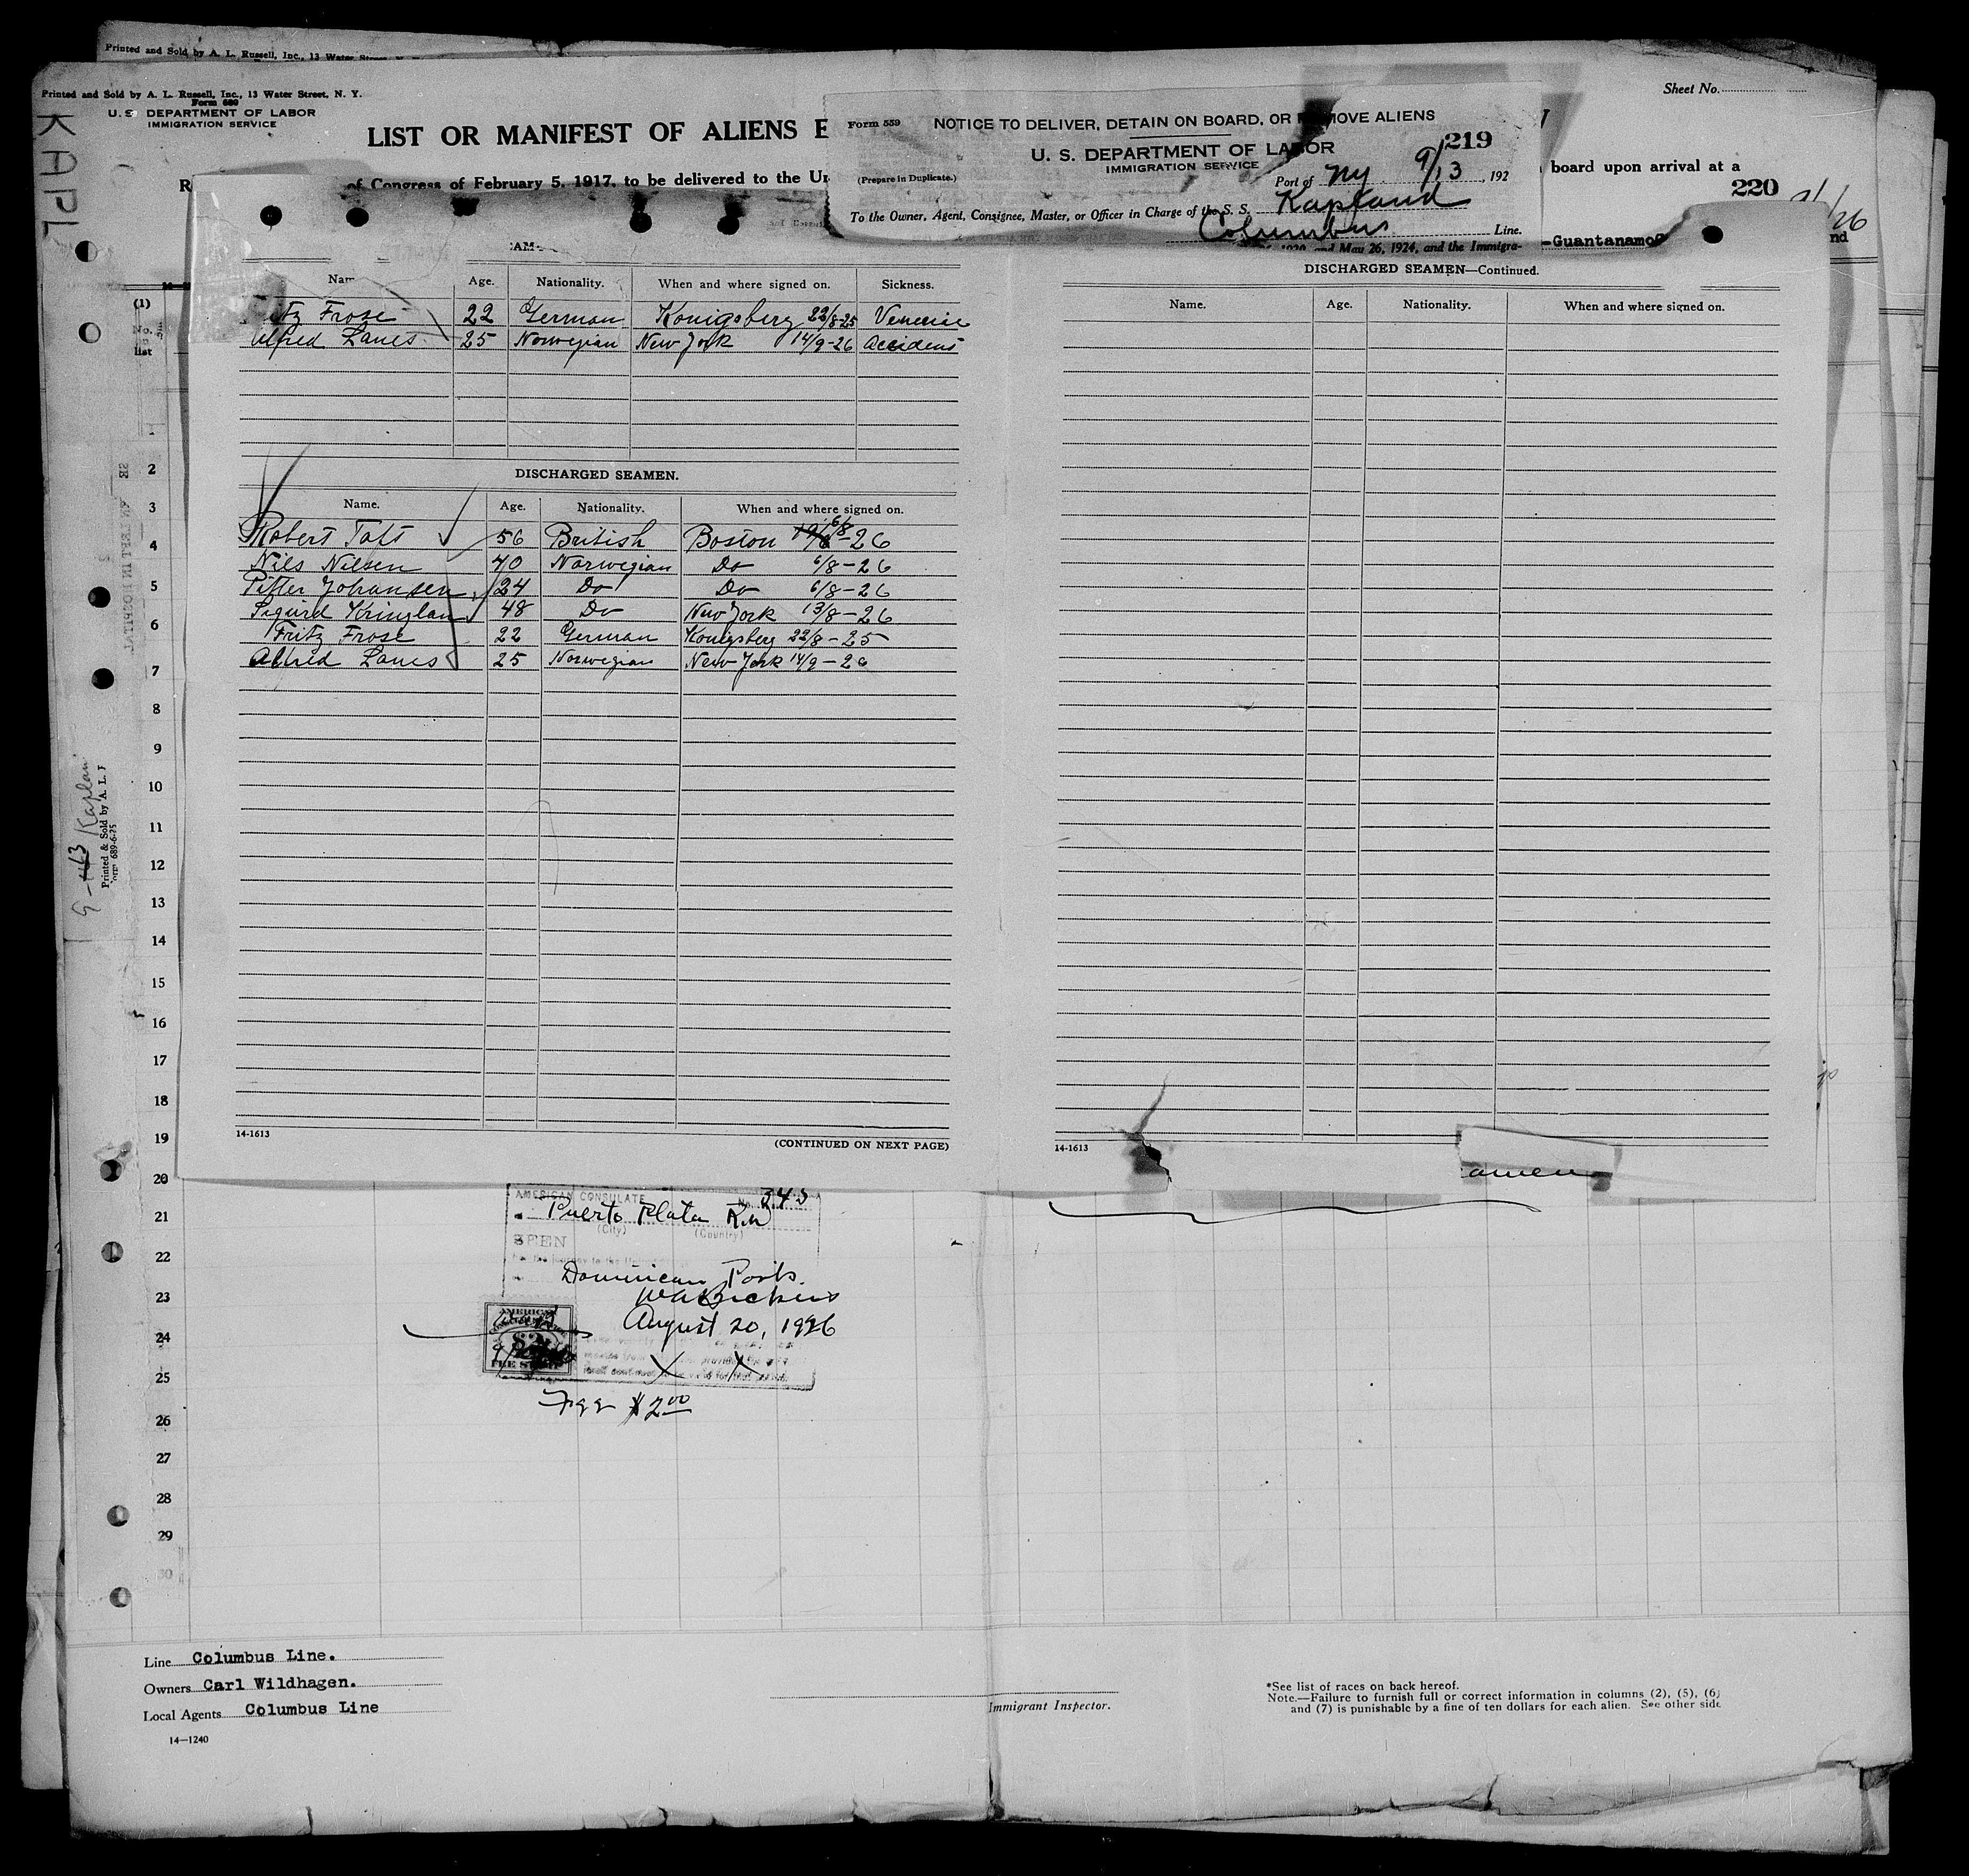 Printed and Sold by A. L. Russell, Inc., 13 Water
Printed and Sold by A. L. Russell, Inc., 13 Water Street, N. Y.
Form 689
U. S. DEPARTMENT OF LABOR
IMMIGRATION SERVICE
KAPL
LIST OR MANIFEST OF ALIENS E
of Congress of February 5, 1917, to be delivered to the
Sheet No.
board upon arrival at a
220
-Guantanamo
nd
Form 559
NOTICE TO DELIVER, DETAIN ON BOARD, OR REMOVE ALIENS
219
U. S. DEPARTMENT OF LABOR
IMMIGRATION SERVICE
(Prepare in Duplicate.)
Port of NY 9/13, 192
To the Owner, Agent, Consignee, Master, or Officer in Charge of the S. S. Kapland
Columbus Line.
and May 26, 1924, and the Immigra-
(1)
No.
list
Age. Nationality. When and where signed on. Sickness.
Frose 22 German Konigsberg 22/8-25
Alfred Lanes 25 Norwegian New York 14/9-26 Accident
DISCHARGED SEAMEN.
Name. Age. Nationality. When and where signed on.
Robert Tott 56 British Boston 6/8-26
Nils Nilsen 40 Norwegian Do 6/8-26
Johansen 24 Do Do 6/8-26
Sigurd Kringlan 48 Do New York 13/8-26
Fritz Frose 22 German Konigsberg 22/8-25
Alfred Lanes 25 Norwegian New York 14/9-26
14-1613
(CONTINUED ON NEXT PAGE)
DISCHARGED SEAMEN—Continued.
Name. Age. Nationality. When and where signed on.
14-1613
2
3
4
5
6
7
8
9
10
11
12
13
14
15
16
17
18
19
20
21
22
23
24
25
26
27
28
29
30
Printed & Sold by A. L.
689-6-25
AMERICAN CONSULATE No. 345
Puerto Plata
(City) (Country)
SEEN
Dominican Ports.
August 20, 1926
AMERICAN
$2
FEE STAMP
Fee $2.00
Line Columbus Line.
Owners Carl Wildhagen.
Local Agents Columbus Line
14—1240
Immigrant Inspector.
*See list of races on back hereof.
Note.—Failure to furnish full or correct information in columns (2), (5), (6)
and (7) is punishable by a fine of ten dollars for each alien. See other side